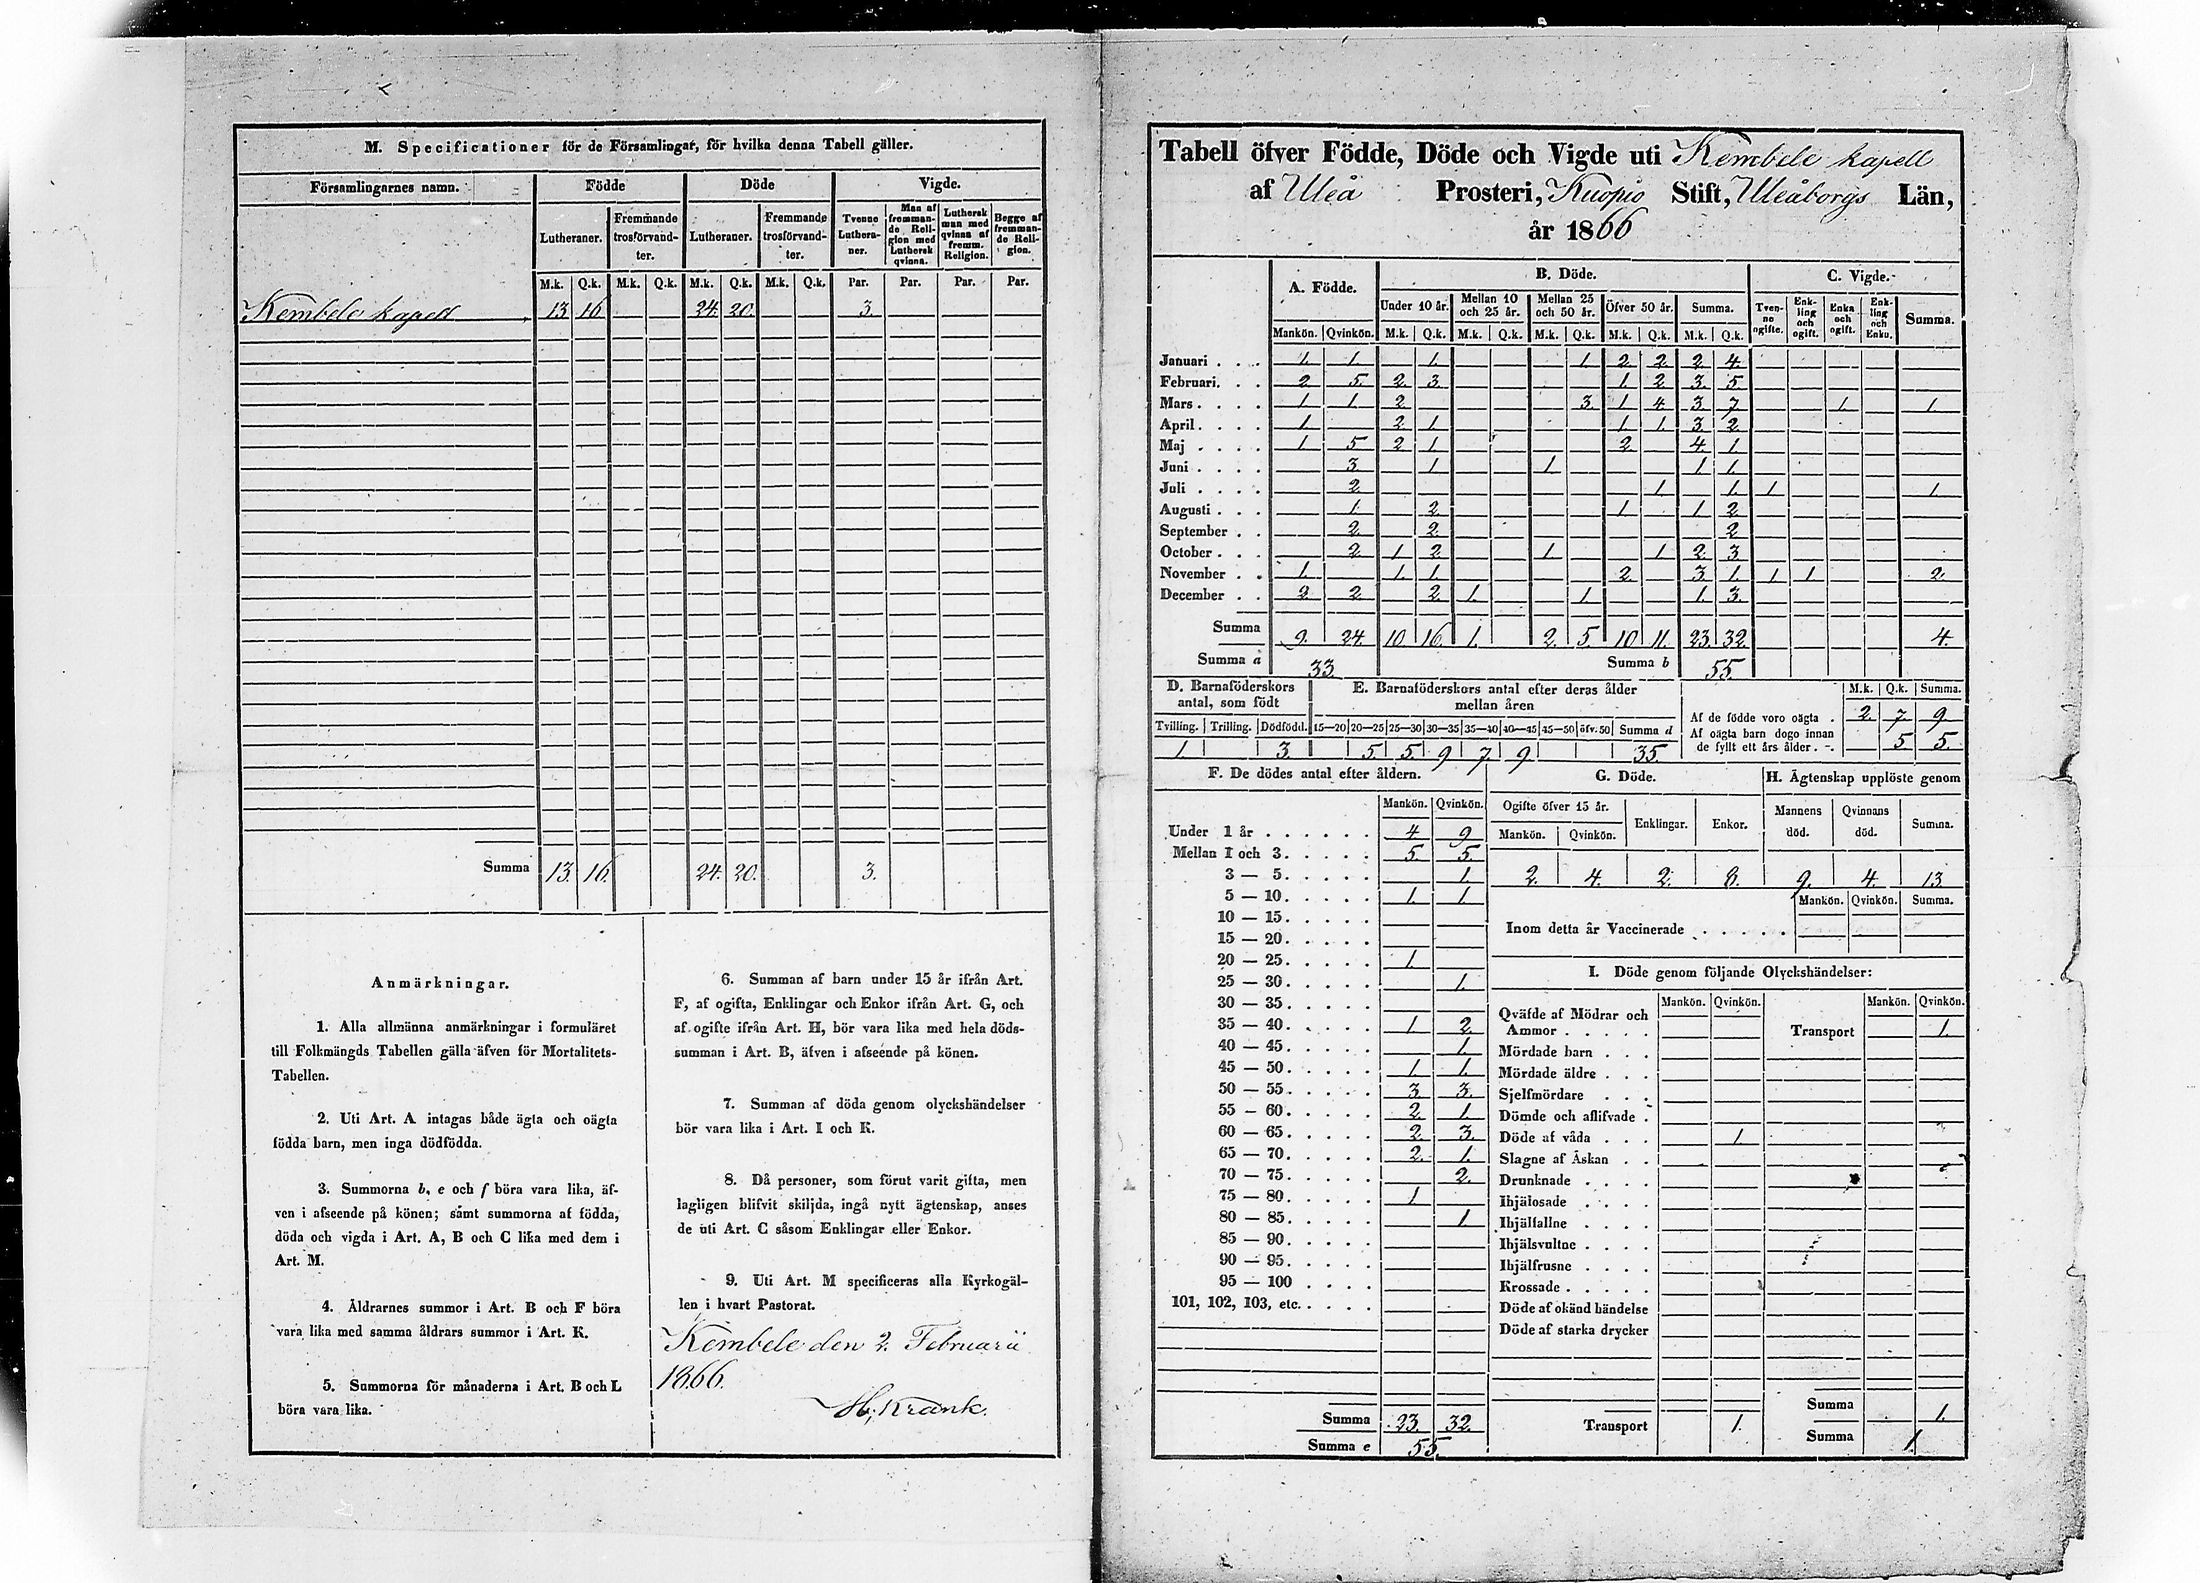 M. Specificationer för de Församlingar, för hvilka denna Tabell gäller.
Församlingarnes namn. Födde Döde Vigde.
Lutheraner. Fremmande trosförvandter. Lutheraner. Fremmande trosförvandter. Tvenne Lutheraner. Man af fremmande Religion med Luthersk qvinna. Luthersk man med qvinna af fremm. Religion. Begge af fremmande Religion.
M.k. Q.k. M.k. Q.k. M.k. Q.k. M.k. Q.k. Par. Par. Par. Par.
Kembele kapell 13 16 24. 20. 3.
Summa 13. 16. 24. 20. 3.
Anmärkningar.
1. Alla allmänna anmärkningar i formuläret
till Folkmängds Tabellen gälla äfven för Mortalitets-
Tabellen.
2. Uti Art. A intagas både ägta och oägta
födda barn, men inga dödfödda.
3. Summorna b, e och f böra vara lika, äf-
ven i afseende på könen; samt summorna af födda,
döda och vigda i Art. A, B och C lika med dem i
Art. M.
4. Åldrarnes summor i Art. B och F böra
vara lika med samma åldrars summor i Art. K.
5. Summorna för månaderna i Art. B och L
böra vara lika.
6. Summan af barn under 15 år ifrån Art.
F, af ogifta, Enklingar och Enkor ifrån Art. G, och
af ogifte ifrån Art. H, bör vara lika med hela döds-
summan i Art. B, äfven i afseende på könen.
7. Summan af döda genom olyckshändelser
bör vara lika i Art. I och K.
8. Då personer, som förut varit gifta, men
lagligen blifvit skiljda, ingå nytt ägtenskap, anses
de uti Art. C såsom Enklingar eller Enkor.
9. Uti Art. M specificeras alla Kyrkogäl-
len i hvart Pastorat.
Kembele den 2. Februarii
1866.
H. Krank.
Tabell öfver Födde, Döde och Vigde uti Kembele kapell
af Uleå Prosteri, Kuopio Stift, Uleåborgs Län,
år 1866
A. Födde. B. Döde. C. Vigde.
Under 10 år. Mellan 10 och 25 år. Mellan 25 och 50 år. Öfver 50 år. Summa. Tvenne ogifte. Enkling och ogift. Enka och ogift. Enkling och Enka. Summa.
Mankön. Qvinkön. M.k. Q.k. M.k. Q.k. M.k. Q.k. M.k. Q.k. M.k. Q.k.
Januari 1. 1. 1. 1. 2. 2. 2. 4.
Februari. 2. 5. 2. 3. 1. 2. 3. 5.
Mars 1. 1. 2. 3. 1. 4. 3. 7. 1. 1.
April 1. 2. 1. 1. 1. 3. 2.
Maj 1. 5. 2. 1. 2. 4. 1.
Juni 3. 1. 1. 1. 1.
Juli 2. 1. 1. 1. 1.
Augusti 1. 2. 1. 1. 2.
September 2. 2. 2.
October 2. 1. 2. 1. 1. 2. 3.
November 1. 1. 1. 2. 3. 1. 1. 1. 2.
December 2. 2. 2. 1. 1. 1. 3.
Summa 9. 24. 10. 16. 1. 2. 5. 10. 11. 23. 32. 4.
Summa a 33. Summa b 55.
D. Barnaföderskors antal, som födt
E. Barnaföderskors antal efter deras ålder mellan åren
M.k. Q.k. Summa.
Af de födde voro oägta . 2. 7. 9.
Af oägta barn dogo innan
de fyllt ett års ålder . 5. 5.
Tvilling. Trilling. Dödfödd. 15—20 20—25 25—30 30—35 35—40 40—45 45—50 öfv. 50 Summa d
1. 3. 5. 5. 9. 7. 9. 35.
F. De dödes antal efter åldern.
Mankön. Qvinkön.
Under 1 år 4. 9.
Mellan 1 och 3. 5. 5.
3 — 5. 1.
5 — 10. 1. 1.
10 — 15.
15 — 20.
20 — 25. 1.
25 — 30. 1.
30 — 35.
35 — 40. 1. 2.
40 — 45. 1.
45 — 50. 1. 1.
50 — 55. 3. 3.
55 — 60. 2. 1.
60 — 65. 2. 3.
65 — 70. 2. 1.
70 — 75. 2.
75 — 80. 1.
80 — 85. 1.
85 — 90.
90 — 95.
95 — 100
101, 102, 103, etc.
Summa 23. 32.
Summa e 55.
G. Döde. H. Ägtenskap upplöste genom
Ogifte öfver 15 år. Enklingar. Enkor. Mannens död. Qvinnans död. Summa.
Mankön. Qvinkön.
2. 4. 2. 8. 9. 4. 13.
Mankön. Qvinkön. Summa.
Inom detta år Vaccinerade
I. Döde genom följande Olyckshändelser:
Mankön. Qvinkön. Mankön. Qvinkön.
Qväfde af Mödrar och
Ammor Transport 1.
Mördade barn
Mördade äldre
Sjelfmördare
Dömde och aflifvade
Döde af våda 1.
Slagne af Åskan
Drunknade
Ihjälosade
Ihjälfallne
Ihjälsvultne
Ihjälfrusne
Krossade
Döde af okänd händelse
Döde af starka drycker
Summa 1.
Transport 1. Summa 1.